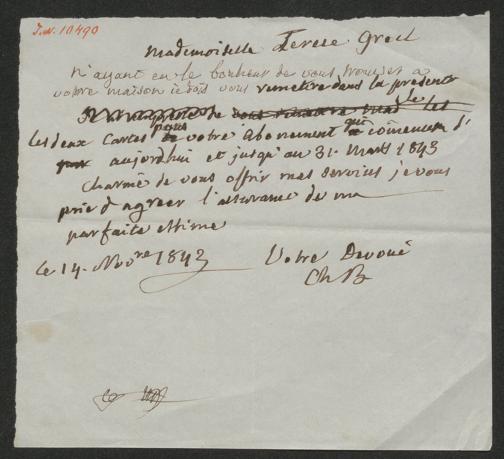 I.N. 10490
Mademoiselle Terese Groel
N'ayant eu le bonheur de vous trouver a
votre maison je dois vous remettre dans la présente
les
les deux Cartes pour votre Abonument qui comencera d'
aujordhui et jusqu'au 31. Mars 1843
Charmé de vous offrir mes services je vous
prie d'agreer l'assurance de ma
parfaite estime
Votre Devoué
le 14. Novre 1842
Ch B